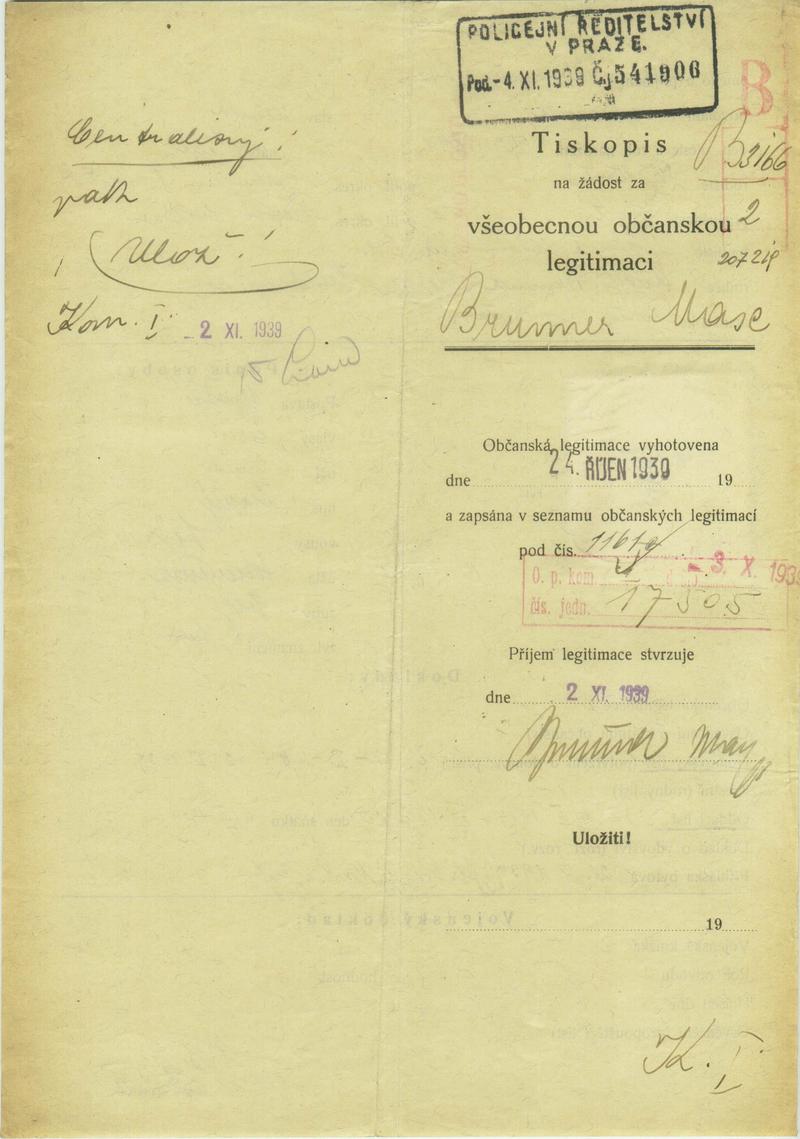 Centralisuj!
pak
Ulož!
Kom. I. 2 XI. 1939
POLICEJNÍ ŘEDITELSTVÍ
V PRAZE.
Pod. -4. XI. 1939 Čj 541906
B
Tiskopis
B 3166
na žádost za
všeobecnou občanskou
2
legitimaci
207219
Brumer Maxe
Občanská legitimace vyhotovena
dne 24. ŘÍJEN 1939 19
a zapsána v seznamu občanských legitimací
pod čís. 1161
O. p. kom. I - 3. X. 1939
čís. jedn. 17505
Příjem legitimace stvrzuje
dne 2 XI. 1939
Uložiti!
19
K. I.